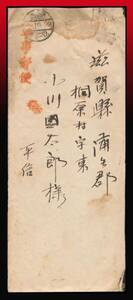 軍事郵便
滋賀縣 蒲生郡
桐原村字東
小川國太郎様
平信